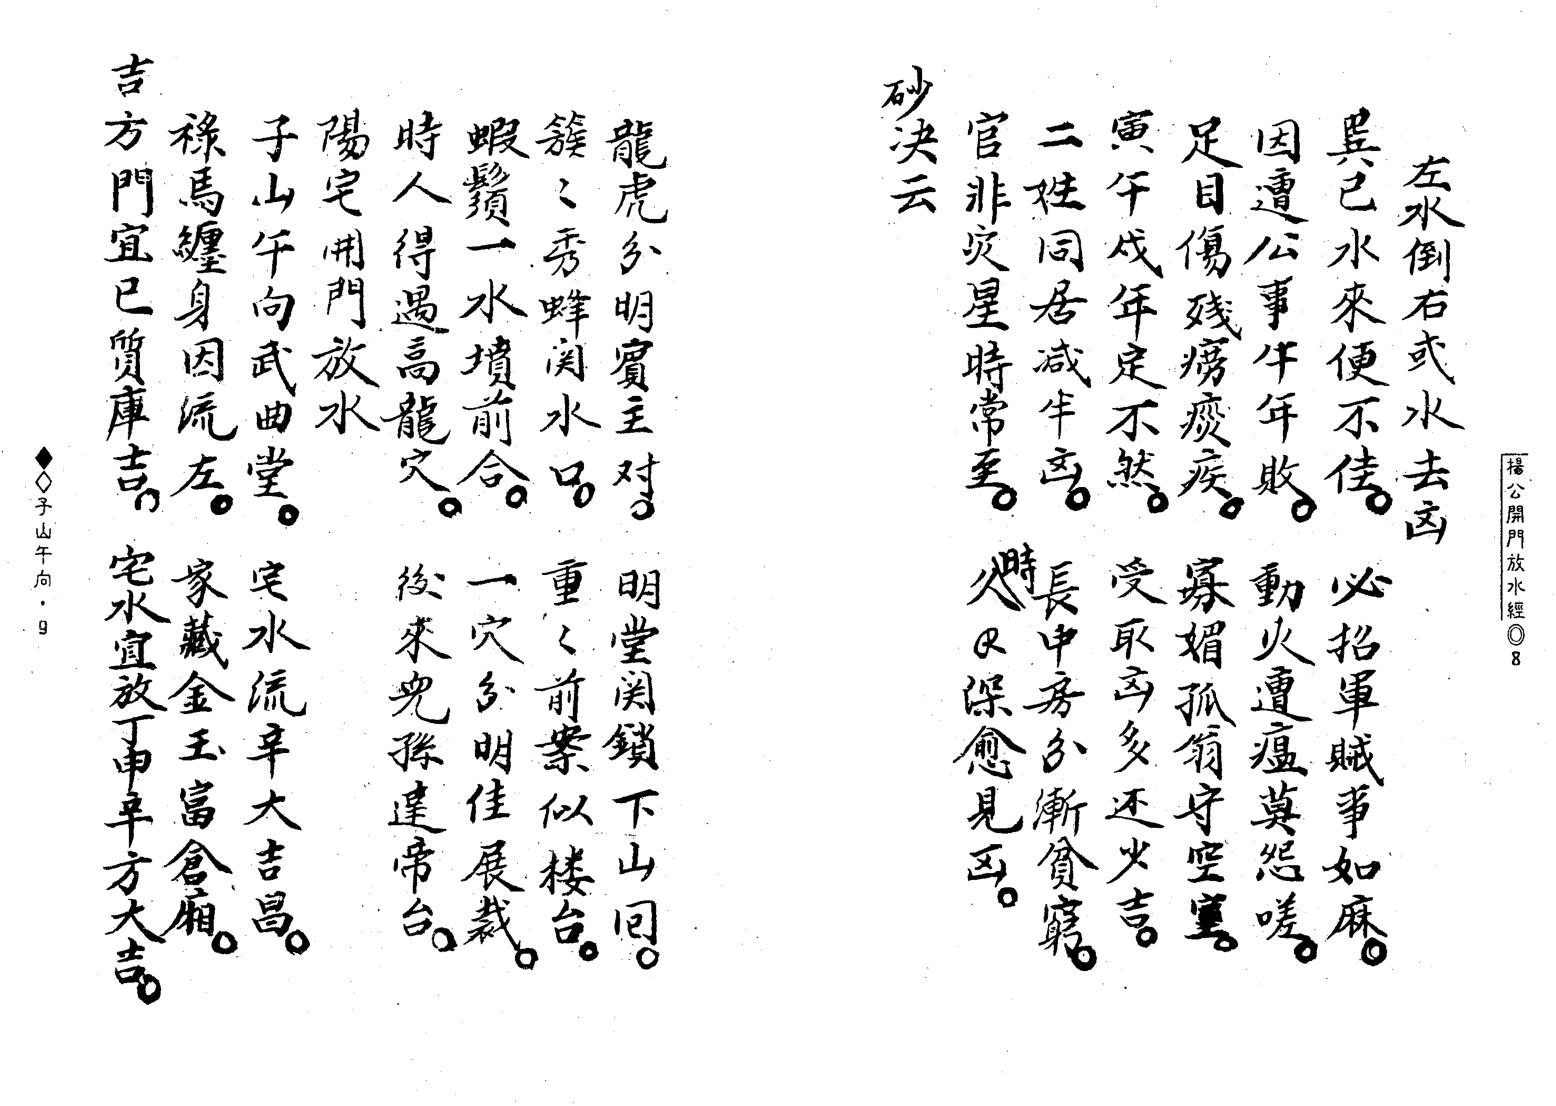 楊公開門放水經◎8
左水倒右或水去凶
巽巳水來便不佳。必招軍賊事如麻。
因遭公事牛年敗。動火遭瘟莫怨嗟。
足目傷殘癆瘓疾。寡媚孤翁守空室。
寅午戌年定不然。受取凶多还少吉。
二姓同居减半凶。長中房分漸貧窮。
官非災星時常至。久時深愈見凶。
砂决云
龍虎分明賓主对。明堂関鎖下山回。
簇々秀峰関水口。重々前案似楼台。
蝦鬚一水墳前合。一穴分明佳展裁。
時人得遇高龍穴。後來兒孫達帝台。
陽宅開門放水
子山午向武曲堂。宅水流辛大吉昌。
祿馬纏身因流左。家藏金玉富倉廂。
吉方門宜巳質庫吉。宅水宜放丁申辛方大吉。
◆◇子山午向・9